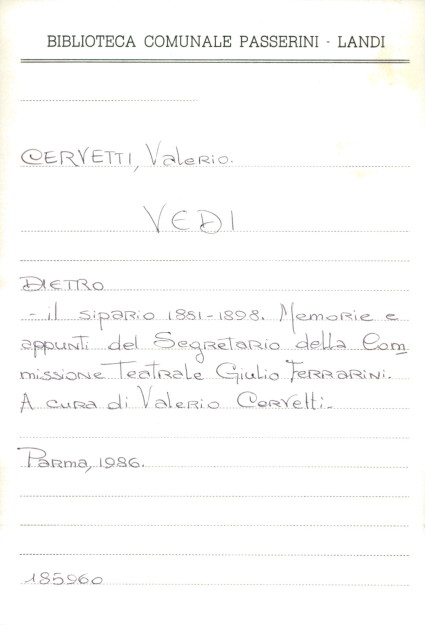 BIBLIOTECA COMUNALE PASSERINI - LANDI
CERVETTI, Valerio.
VEDI
DIETRO
- il sipario 1881-1898. Memorie e
appunti del Segretario della Com
missione Teatrale Giulio Ferrarini.
A cura di Valerio Cervetti.
Parma, 1986.
185960